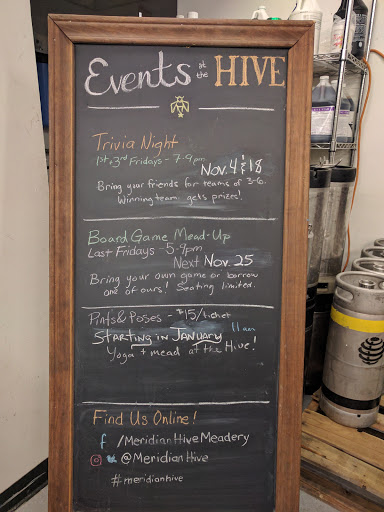 Events at the HIVE
Trivia Night
1st, 3rd Fridays - 7-9pm
Nov. 4 & 18
Bring your friends for teams of 3-6.
Winning team gets prizes!
Board Game Mead-Up
Last Fridays - 5-9pm
Next Nov. 25
Bring your own game or borrow
one of ours! Seating limited.
Pints & Poses - $15/ticket
STARTING IN JANUARY 11am
Yoga + mead at the Hive!
Find Us Online!
f /MeridianHiveMeadery
@MeridianHive
#meridianhive